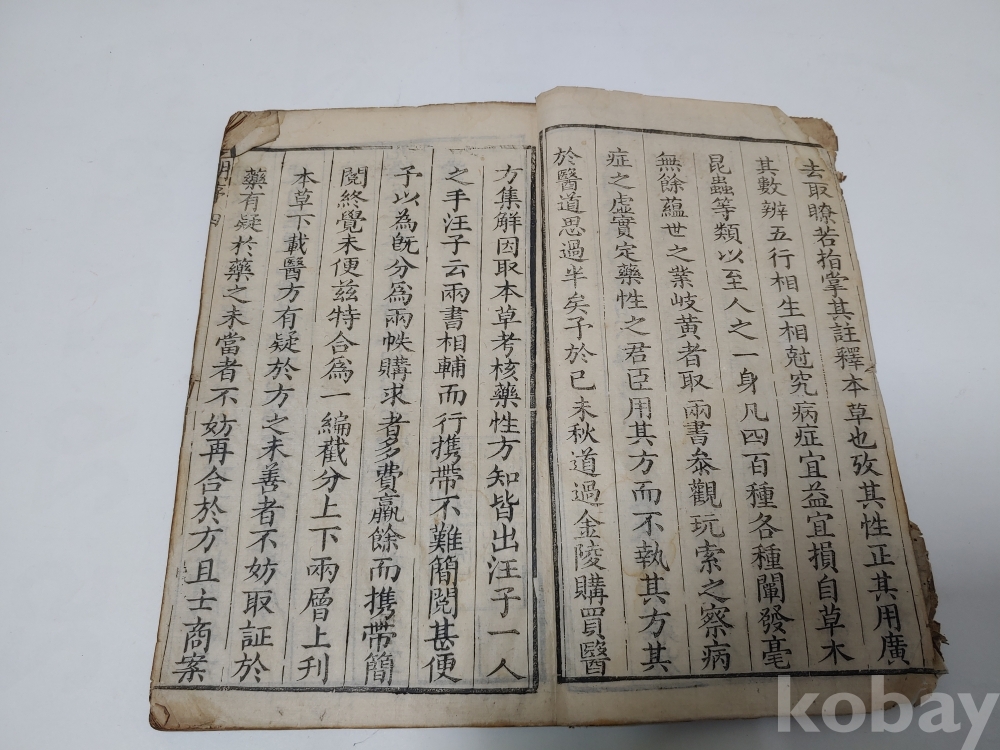 去取瞭若指掌其註釋本草也攷其性正其用廣
其數辨五行相生相尅究病症宜益宜損自草木
昆蟲等類以至人之一身凡四百種各種闡發毫
無餘蘊世之業岐黃者取兩書叅觀玩索之察病
症之虛實定藥性之君臣用其方而不執其方其
於醫道思過半矣予於已未秋道過金陵購買醫
方集解因取本草考核藥性方知皆出汪子一人
之手汪子云兩書相輔而行携帶不難簡閱甚便
予以為旣分爲兩帙購求者多費羸餘而携帶簡
閱終覺未便茲特合爲一編截分上下兩層上刋
本草下載醫方有疑於方之未善者不妨取証於
藥有疑於藥之未當者不妨再合於方且士商案
序 四
kobay